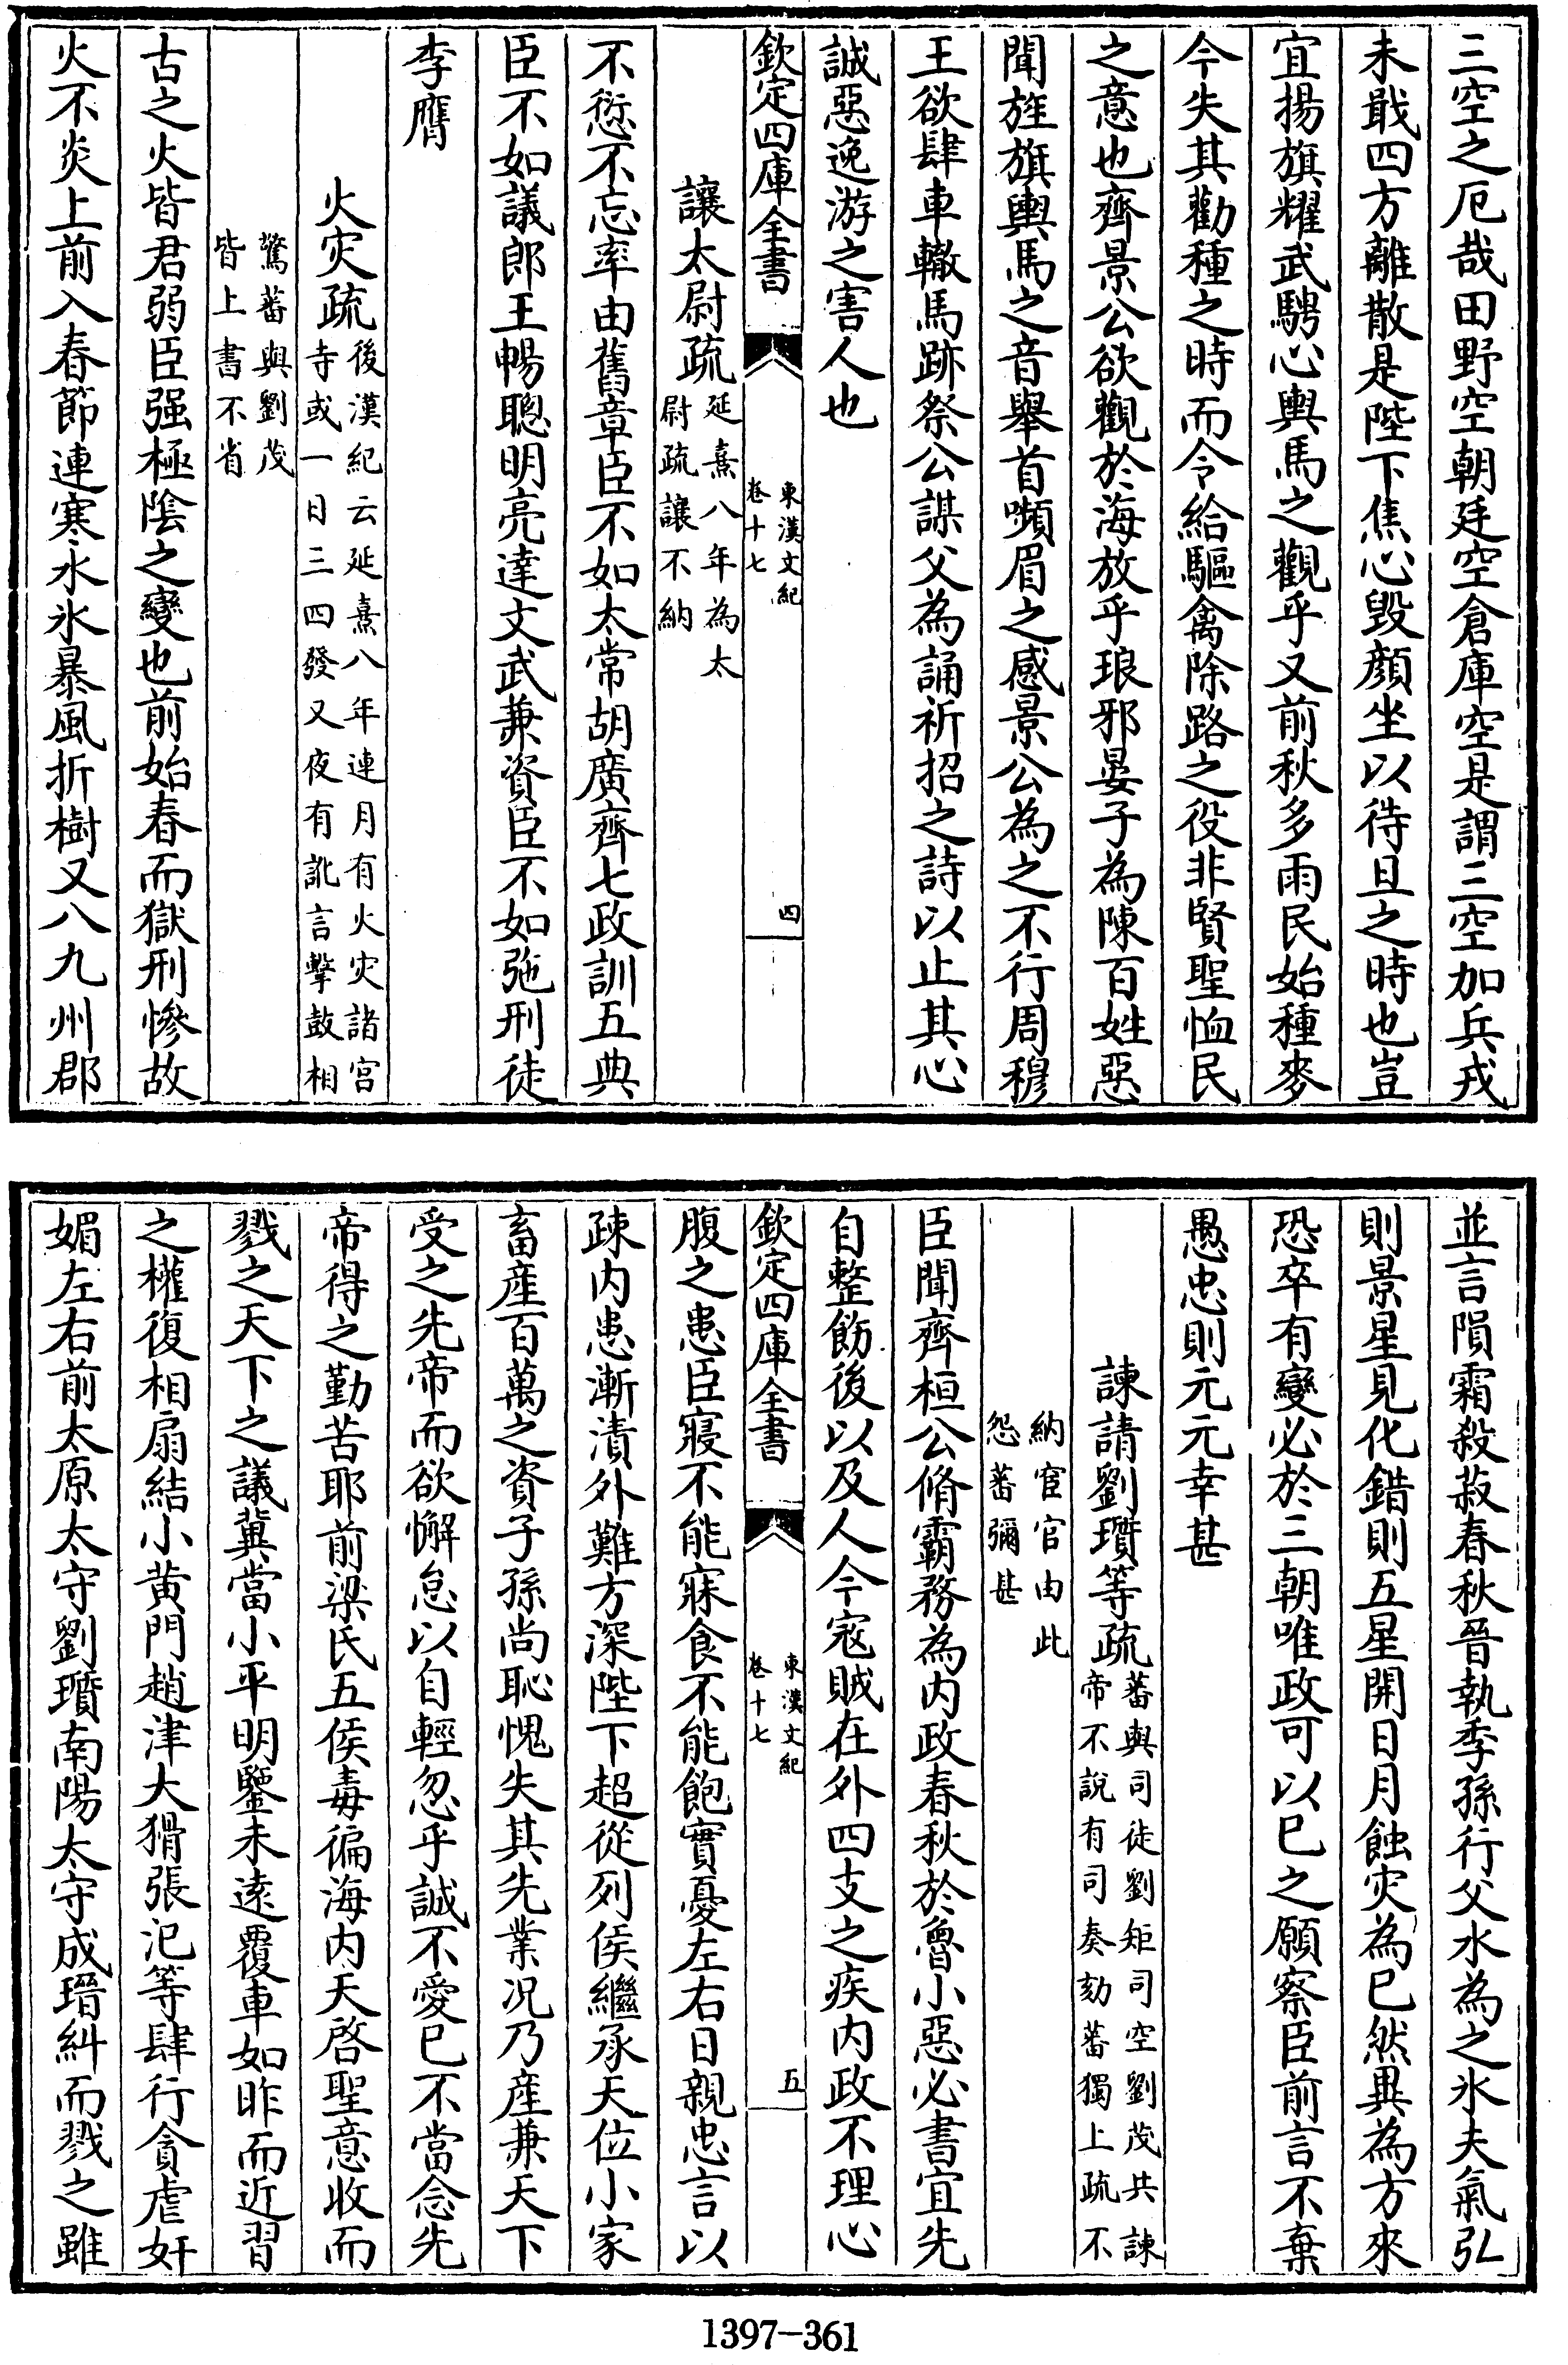 三空之厄哉田野空朝廷空倉庫空是謂三空加兵戎
未戢四方離散是陛下焦心毀顔坐以待旦之時也豈
宜揚旗耀武騁心輿馬之觀乎又前秋多雨民始種麥
今失其勸種之時而令給驅禽除路之役非賢聖恤民
之意也齊景公欲觀於海放乎琅邪晏子為陳百姓惡
聞旌旗輿馬之音舉首嚬眉之感景公為之不行周穆
王欲肆車轍馬跡祭公謀父為誦祈招之詩以止其心
誠惡逸游之害人也
欽定四庫全書
東漢文紀
卷十七
四
讓太尉疏
延熹八年為太
尉疏讓不納
不愆不忘率由舊章臣不如太常胡廣齊七政訓五典
臣不如議郎王暢聰明亮達文武兼資臣不如弛刑徒
李膺
火灾疏
後漢紀云延熹八年連月有火灾諸宮
寺或一日三四發又夜有訛言擊鼓相
驚蕃與劉茂
皆上書不省
古之火皆君弱臣强極陰之變也前始春而獄刑慘故
火不炎上前入春節連寒水氷暴風折樹又八九州郡
並言隕霜殺菽春秋晉執季孫行父水為之氷夫氣弘
則景星見化錯則五星開日月蝕灾為已然異為方來
恐卒有變必於三朝唯政可以已之願察臣前言不棄
愚忠則元元幸甚
諫請劉瓆等疏
蕃與司徒劉矩司空劉茂共諫
帝不說有司奏劾蕃獨上疏不
納宦官由此
怨蕃彌甚
臣聞齊桓公脩霸務為内政春秋於魯小惡必書宜先
自整飭後以及人今寇賊在外四支之疾内政不理心
欽定四庫全書
東漢文紀
卷十七
五
腹之患臣寢不能寐食不能飽實憂左右日親忠言以
疎内患漸漬外難方深陛下超從列侯繼承天位小家
畜産百萬之資子孫尚恥愧失其先業况乃産兼天下
受之先帝而欲懈怠以自輕忽乎誠不愛已不當念先
帝得之勤苦耶前梁氏五侯毒徧海内天啓聖意收而
戮之天下之議冀當小平明鑒未遠覆車如昨而近習
之權復相扇結小黄門趙津大猾張汜等肆行貪虐奸
媚左右前太原太守劉瓆南陽太守成瑨糾而戮之雖
1397-361